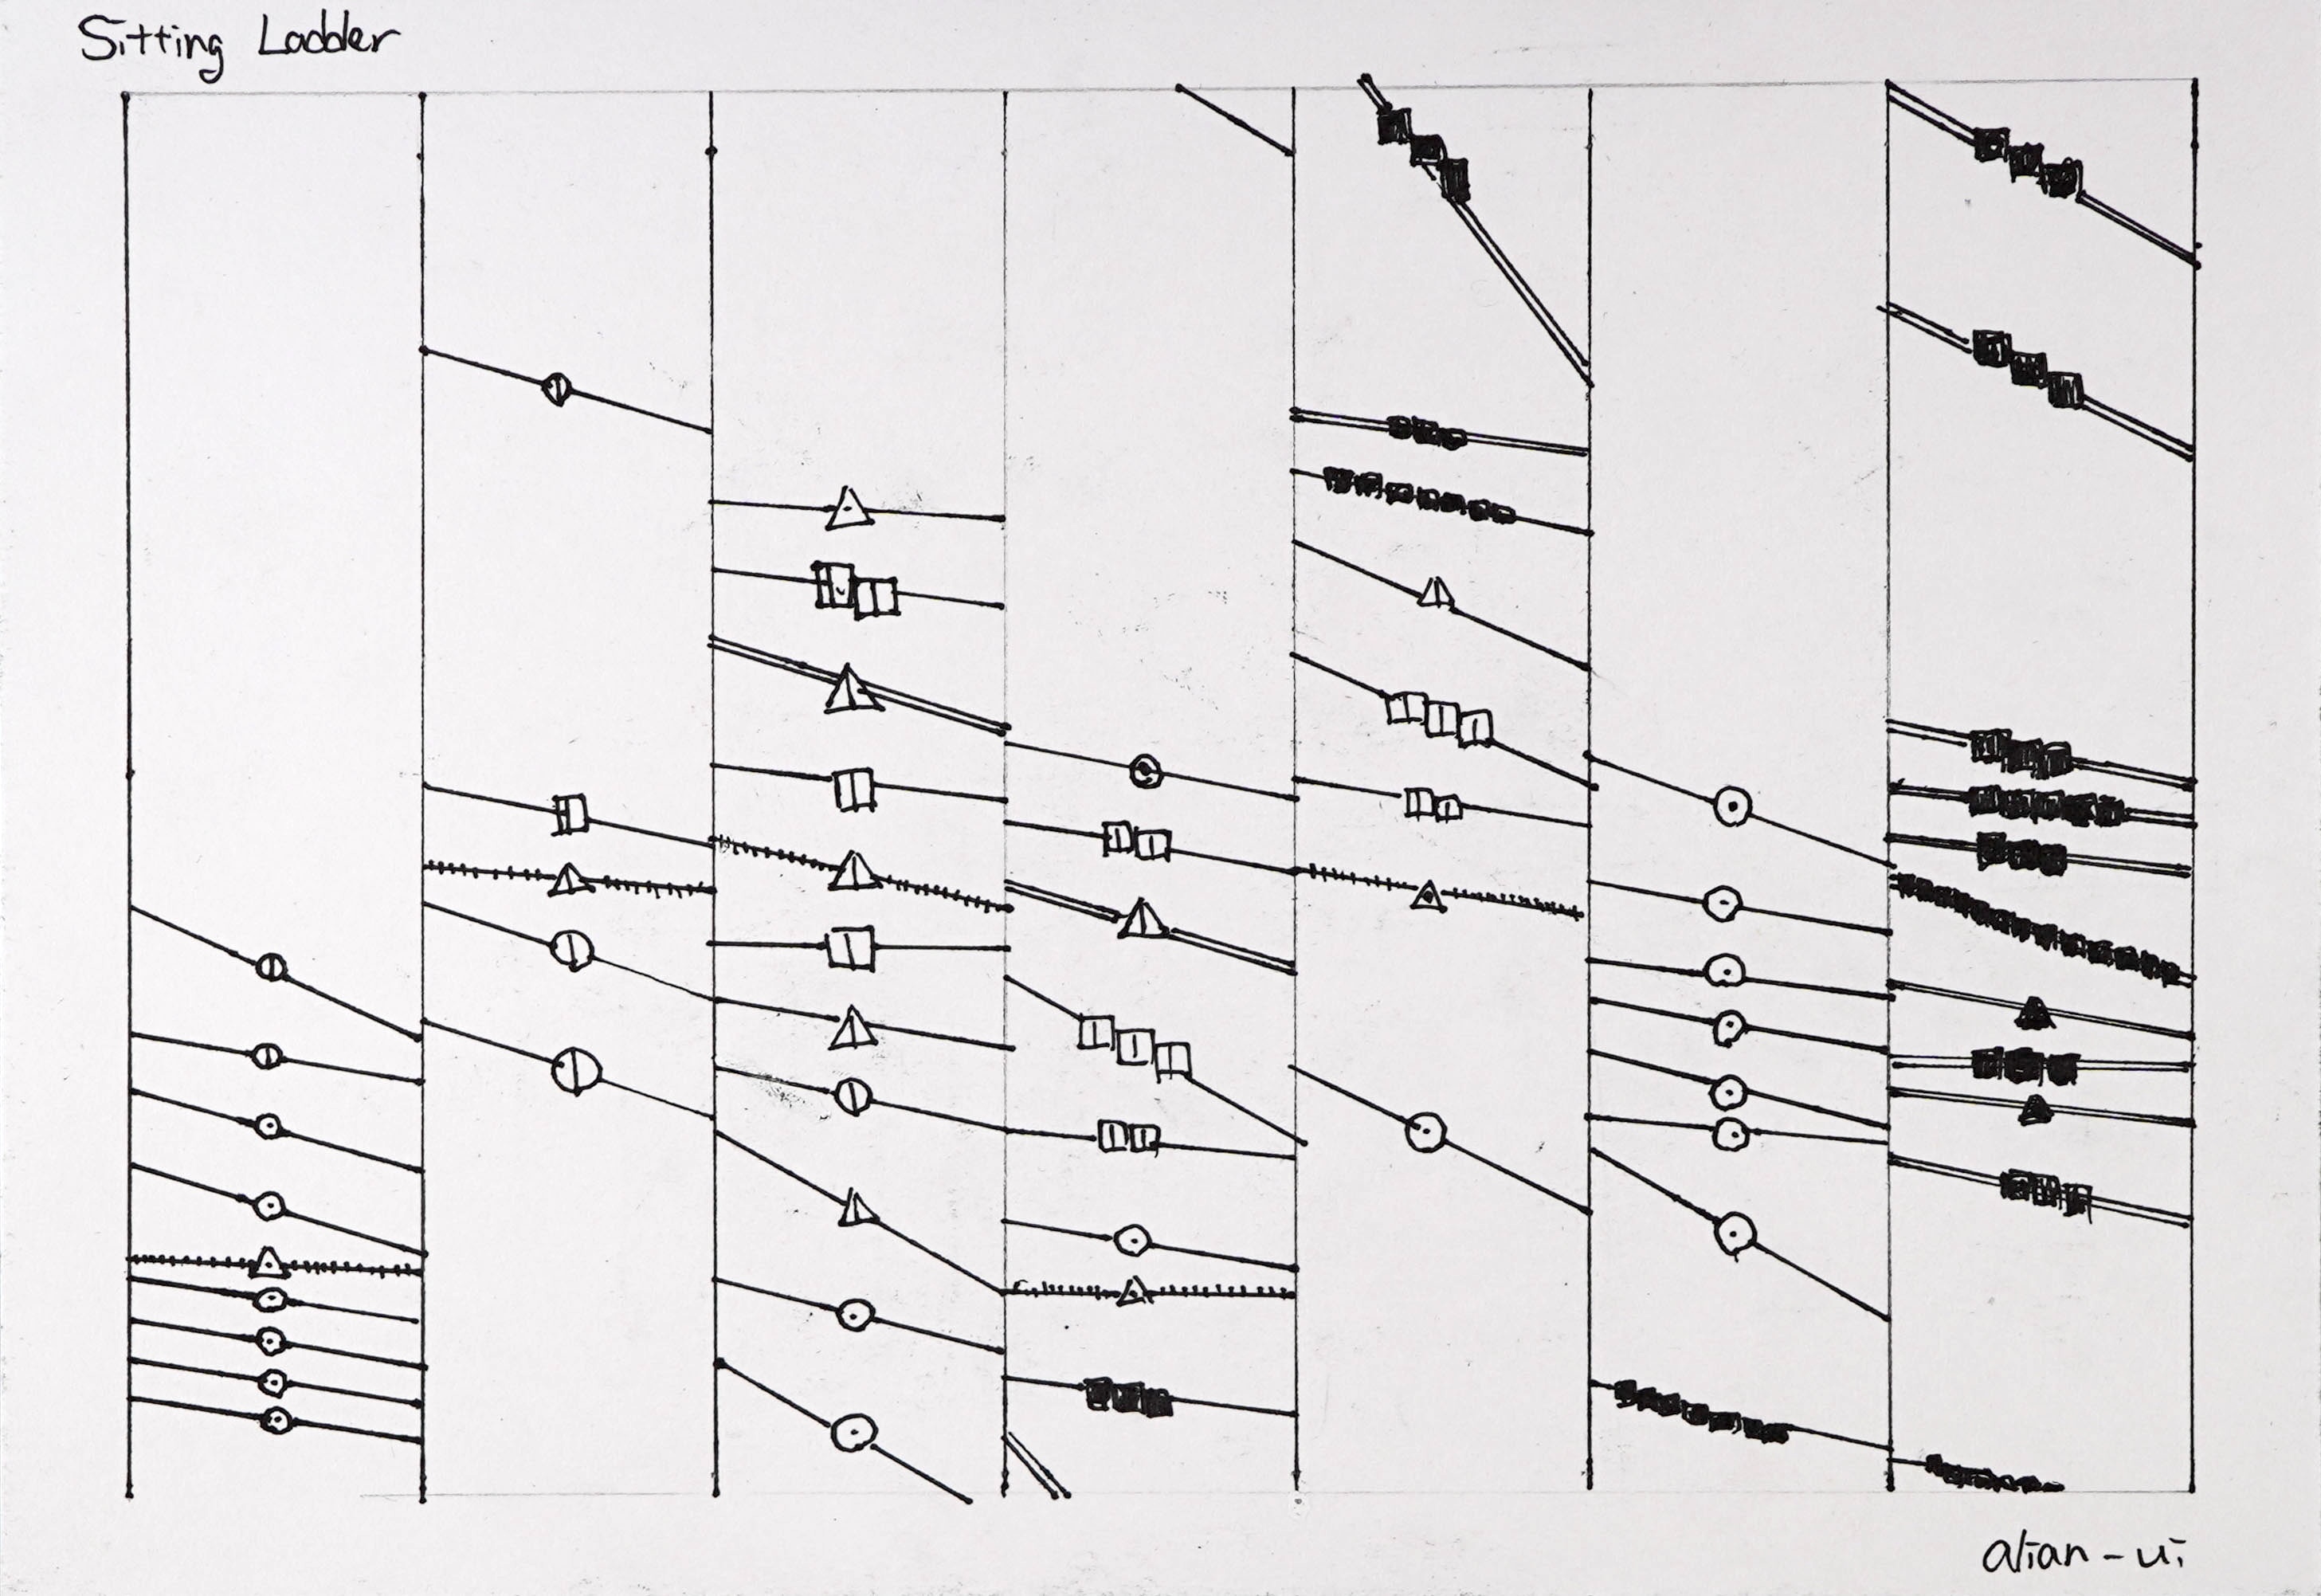 Sitting Ladder
alian-ui